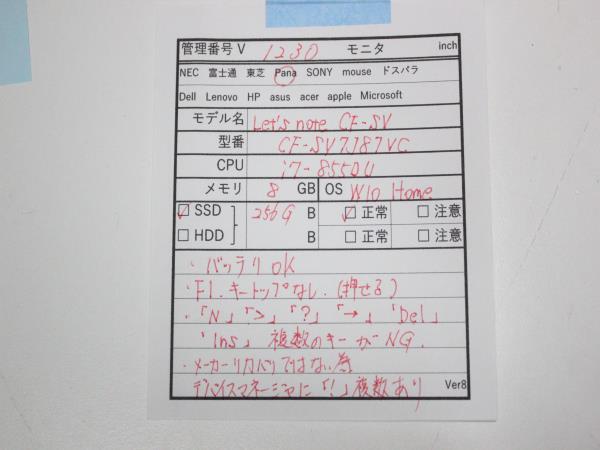 管理番号 V 1230 モニタ inch
NEC 富士通 東芝 Pana SONY mouse ドスパラ
Dell Lenovo HP asus acer apple Microsoft
モデル名 Let's note CF-SV
型番 CF-SV7J87VC
CPU i7-8550U
メモリ 8 GB OS W10 Home
☑ SSD 256G B ☑ 正常 ☐ 注意
☐ HDD B ☐ 正常 ☐ 注意
・バッテリOK
・F1.キートップなし.(押せる)
・「N」「>」「?」「→」「Del」
「Ins」複数のキーがNG.
・メーカーリカバリではない為
デバイスマネージャに「!」複数あり
Ver8